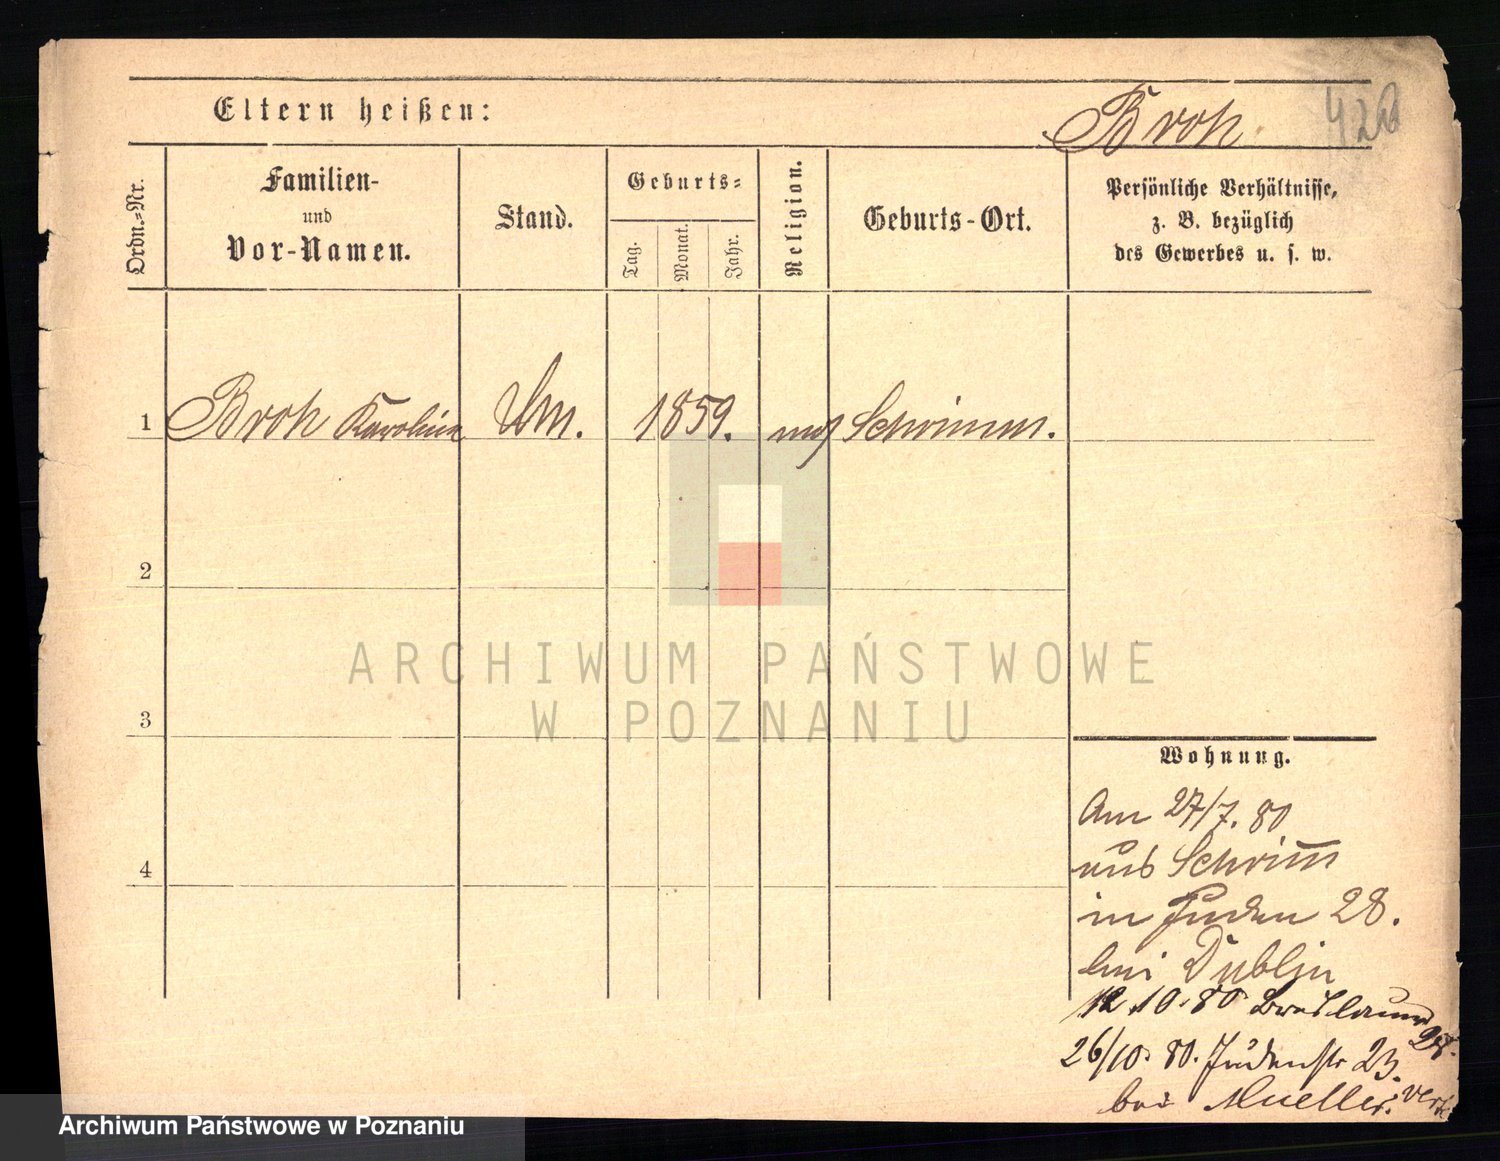 Eltern heißen:
Broh
428
Ordn.=Nr.
Familien-
und
Vor-Namen.
Stand.
Geburts=
Tag.
Monat.
Jahr.
Religion.
Geburts-Ort.
Persönliche Verhältnisse,
z. B. bezüglich
des Gewerbes u. s. w.
1 Broh Karoline 1859. mos Schrimm.
2
3
4
ARCHIWUM PAŃSTWOWE
W POZNANIU
Wohnung.
Am 27/7. 80
aus Schrim̅
in Juden 28.
bei Dublin
12.10.80 Breslauer 28.
26/10. 80. Judenstr 23.
bei Mueller.
Archiwum Państwowe w Poznaniu